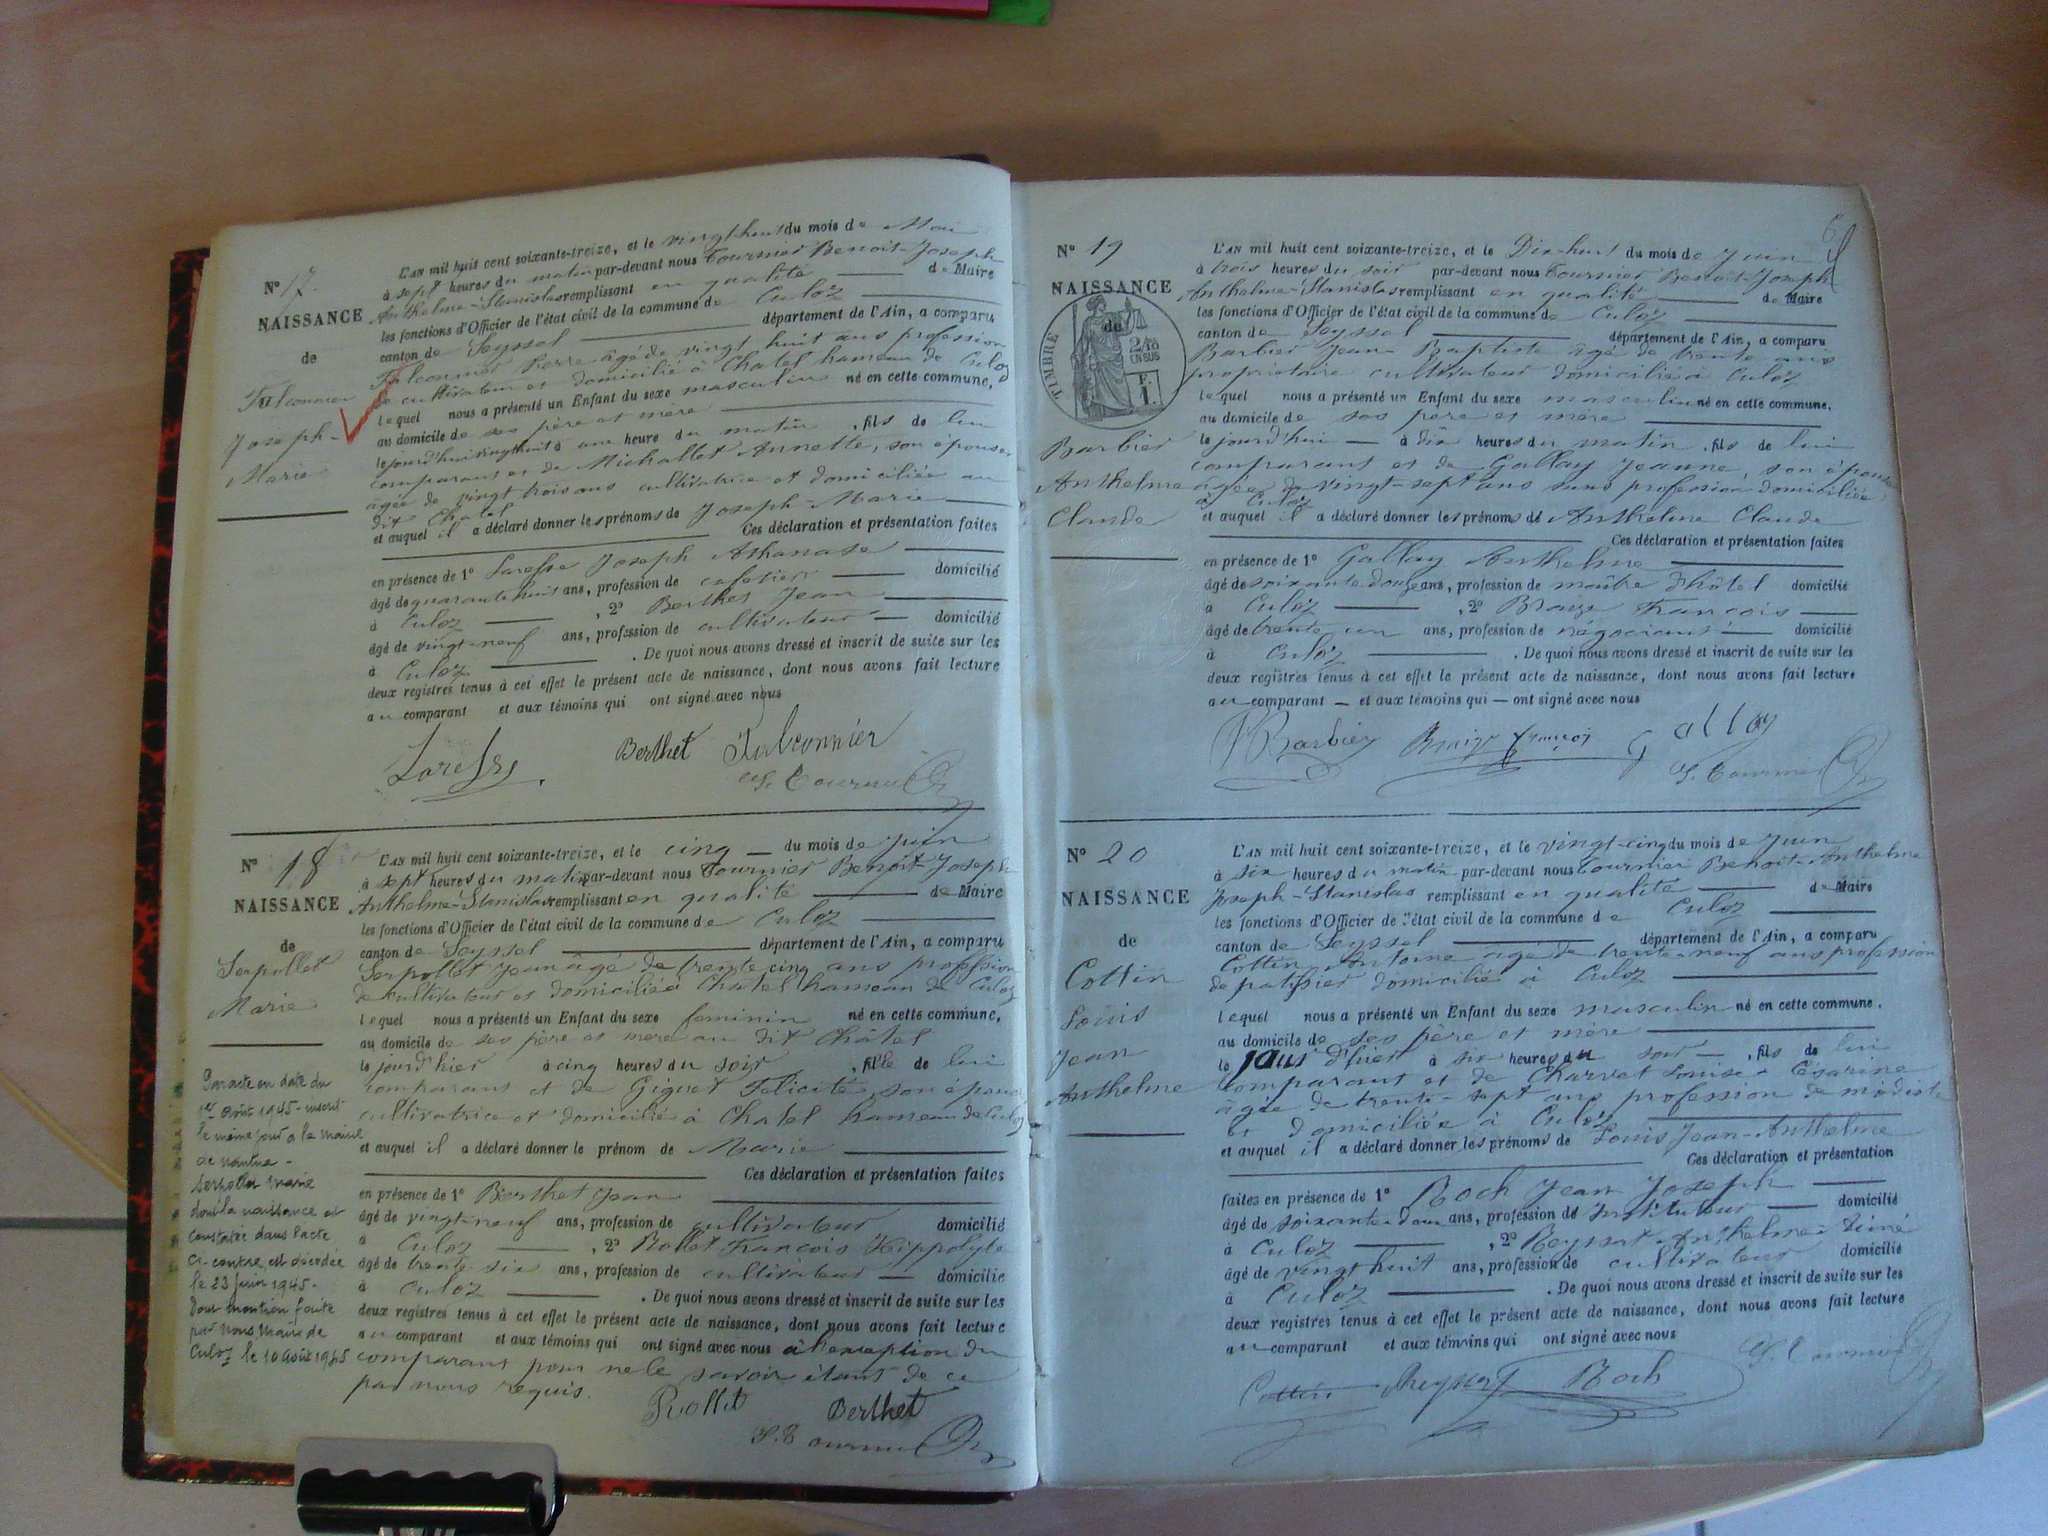 N° 17.
NAISSANCE
de
Falconnier
Joseph-
Marie
L'AN mil huit cent soixante-treize, et le vingt huit du mois de Mai
à sept heures du matin par-devant nous Tournier Benoit-Joseph
Anthelme-Stanislas remplissant en qualité de Maire
les fonctions d'Officier de l'état civil de la commune de Culoz
canton de Seyssel département de l'Ain, a comparu
Falconnier Pierre âgé de vingt huit ans profession
de cultivateur et domicilié à Chatel hameau de Culoz
lequel nous a présenté un Enfant du sexe masculin né en cette commune,
au domicile de ses père et mère
le jourd'hui vingt huit à une heure du matin, fils de lui
comparant et de Michallet Annette, son épouse
âgée de vingt trois ans cultivatrice et domiciliée au
dit Chatel
et auquel il a déclaré donner les prénoms de Joseph-Marie
Ces déclaration et présentation faites
en présence de 1° Joseph Athanase
âgé de quarante huit ans, profession de cafetier domicilié
à Culoz, 2° Berthet Jean
âgé de vingt-neuf ans, profession de cultivateur domicilié
à Culoz. De quoi nous avons dressé et inscrit de suite sur les
deux registres tenus à cet effet le présent acte de naissance, dont nous avons fait lecture
au comparant et aux témoins qui ont signé avec nous
Berthet Falconnier
S. Tournier
N° 18
NAISSANCE
de
Serpollet
Marie
L'AN mil huit cent soixante-treize, et le cinq du mois de Juin
à sept heures du matin par-devant nous Tournier Benoit-Joseph
Anthelme-Stanislas remplissant en qualité de Maire
les fonctions d'Officier de l'état civil de la commune de Culoz
canton de Seyssel département de l'Ain, a comparu
Serpollet Jean âgé de trente cinq ans profession
de cultivateur et domicilié à Chatel hameau de Culoz
lequel nous a présenté un Enfant du sexe feminin né en cette commune,
au domicile de ses père et mère au dit Châtel
le jourd'hier à cinq heures du soir, fille de lui
comparant et de Giguet Felicité, son épouse
cultivatrice et domicilié à Chatel hameau de Culoz
et auquel il a déclaré donner le prénom de Marie
Ces déclaration et présentation faites
en présence de 1° Berthet Jean
âgé de vingt-neuf ans, profession de cultivateur domicilié
à Culoz, 2° Rollet François Hippolyte
âgé de trente six ans, profession de cultivateur domicilié
à Culoz. De quoi nous avons dressé et inscrit de suite sur les
deux registres tenus à cet effet le présent acte de naissance, dont nous avons fait lecture
au comparant et aux témoins qui ont signé avec nous à l'exception du
comparant pour ne le savoir étant de ce
par nous requis.
Rollet Berthet
S. Tournier
Par acte en date du
1er Août 1945 - inscrit
le même jour à la mairie
de
Serpollet Marie
dont la naissance est
constatée dans l'acte
ci-contre est décédée
le 23 juin 1945.
Dont mention faite
par nous Maire de
Culoz le 10 Août 1945
N° 19
NAISSANCE
de
TIMBRE
2/10
EN SUS
F.
1.
Barbier
Anthelme
Claude
L'AN mil huit cent soixante-treize, et le Dix-huit du mois de Juin
à trois heures du soir par-devant nous Tournier Benoit-Joseph
Anthelme-Stanislas remplissant en qualité de Maire
les fonctions d'Officier de l'état civil de la commune de Culoz
canton de Seyssel département de l'Ain, a comparu
Barbier Jean Baptiste âgé de trente ans
propriétaire cultivateur domicilié à Culoz
lequel nous a présenté un Enfant du sexe masculin né en cette commune,
au domicile de ses père et mère
le jourd'hui à dix heures du matin, fils de lui
comparant et de Gallay Jeanne, son épouse
âgée de vingt-sept ans sans profession domiciliée
à Culoz
et auquel il a déclaré donner les prénoms de Anthelme Claude
Ces déclaration et présentation faites
en présence de 1° Gallay Anthelme
âgé de soixante douze ans, profession de maître d'hôtel domicilié
à Culoz, 2° Braize François
âgé de trente un ans, profession de négociant domicilié
à Culoz. De quoi nous avons dressé et inscrit de suite sur les
deux registres tenus à cet effet le présent acte de naissance, dont nous avons fait lecture
au comparant — et aux témoins qui — ont signé avec nous
Barbier Braize françois Gallay
S. Tournier
N° 20
NAISSANCE
de
Cottin
Louis
Jean
Anthelme
L'AN mil huit cent soixante-treize, et le vingt-cinq du mois de Juin
à six heures du matin par-devant nous Tournier Benoit-Anthelme
Joseph-Stanislas remplissant en qualité de Maire
les fonctions d'Officier de l'état civil de la commune de Culoz
canton de Seyssel département de l'Ain, a comparu
Cottin Antoine âgé de trente-neuf ans profession
de patissier domicilié à Culoz
lequel nous a présenté un Enfant du sexe masculin né en cette commune,
au domicile de ses père et mère
le jour d'hier à six heures du soir, fils de lui
comparant et de Charvet Louise
âgée de trente-sept ans profession de modiste
et domiciliée à Culoz
et auquel il a déclaré donner les prénoms de Louis Jean-Anthelme
Ces déclaration et présentation
faites en présence de 1° Roch Jean Joseph
âgé de soixante-deux ans, profession de Instituteur domicilié
à Culoz, 2° Reysset Anthelme-Aimé
âgé de vingt huit ans, profession de cultivateur domicilié
à Culoz. De quoi nous avons dressé et inscrit de suite sur les
deux registres tenus à cet effet le présent acte de naissance, dont nous avons fait lecture
au comparant et aux témoins qui ont signé avec nous
S. Tournier
Cottin Roch